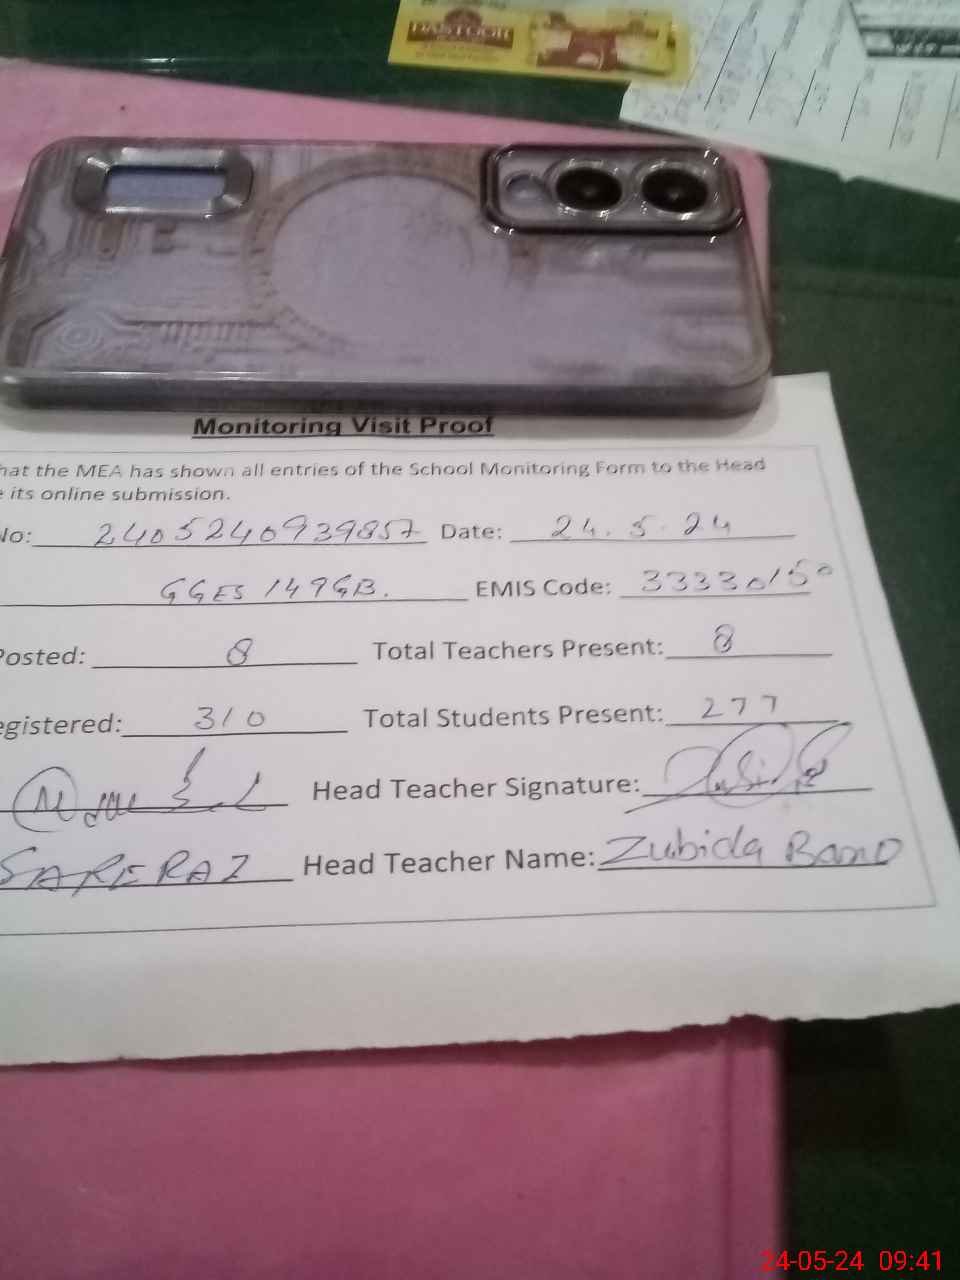 DASTOOR
Monitoring Visit Proof
hat the MEA has shown all entries of the School Monitoring Form to the Head
e its online submission.
No: 2405240939857 Date: 24.5.24
GGES 149GB. EMIS Code: 33330150
Posted: 8 Total Teachers Present: 8
egistered: 310 Total Students Present: 277
Head Teacher Signature:
SARFRAZ Head Teacher Name: Zubida Bano
24-05-24 09:41